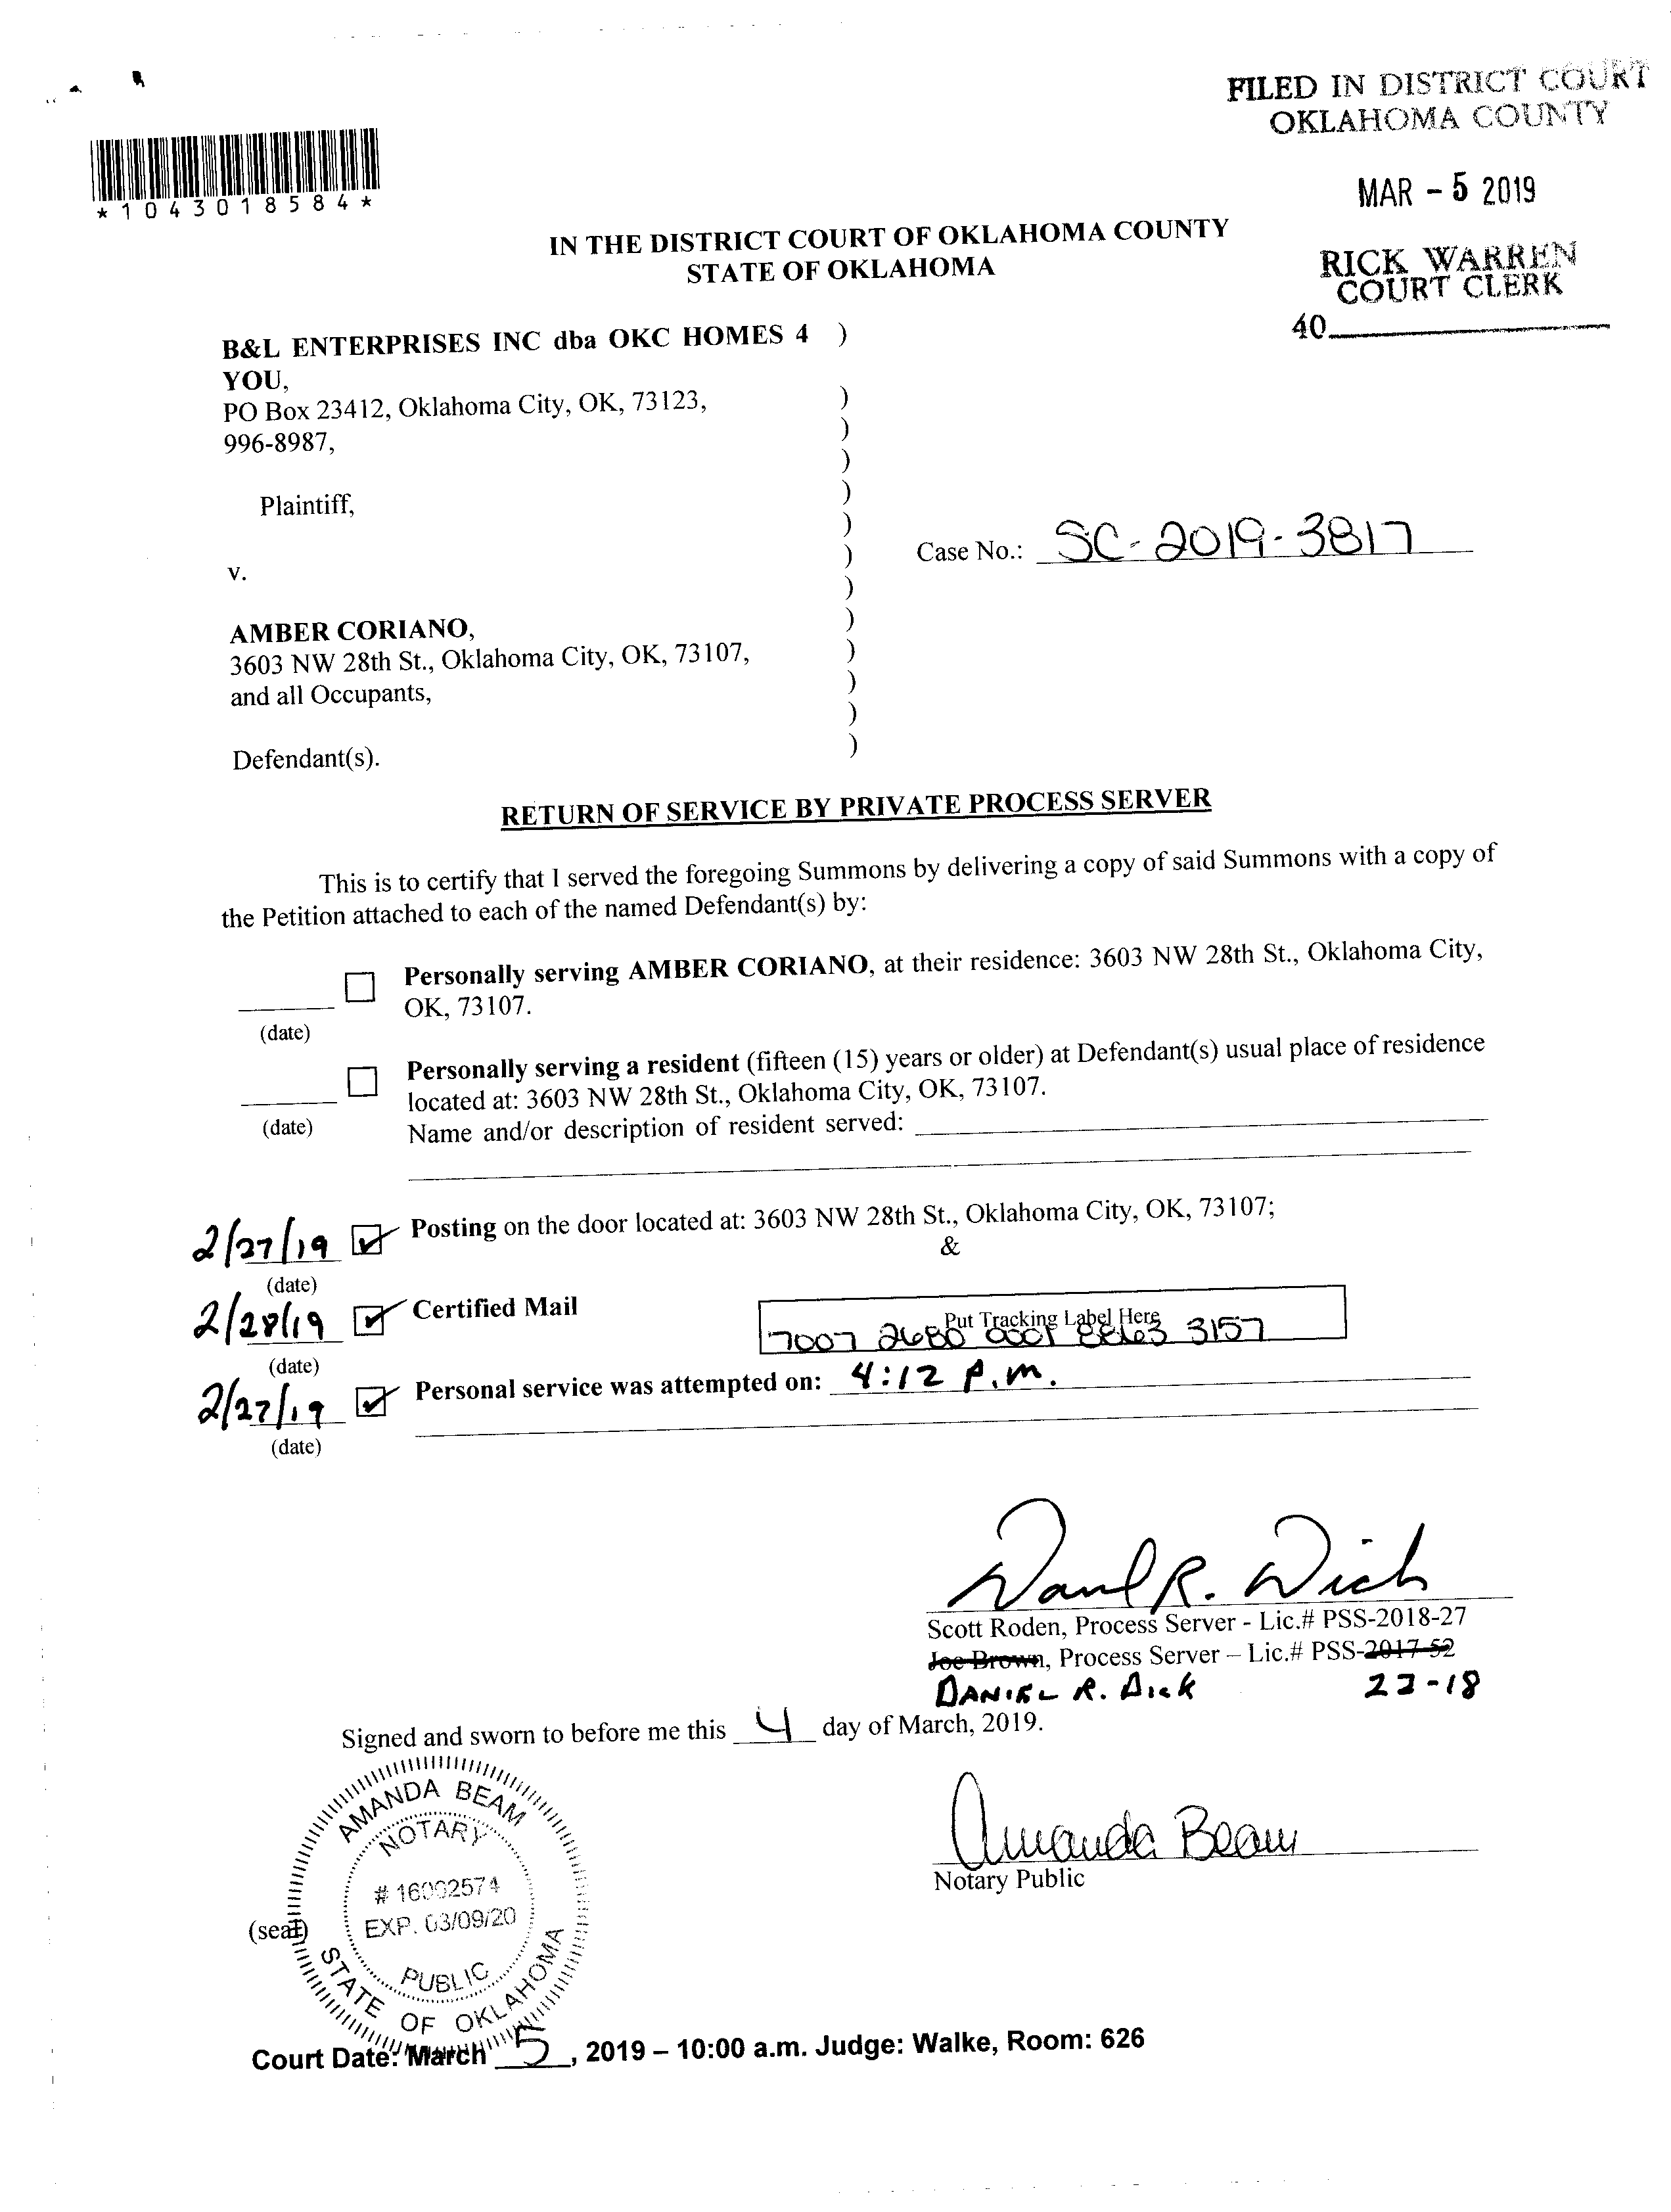 FILED IN DISTRICT COURT
OKLAHOMA COUNTY
MAR - 5 2019
RICK WARREN
COURT CLERK
40
*1043018584*
IN THE DISTRICT COURT OF OKLAHOMA COUNTY
STATE OF OKLAHOMA
B&L ENTERPRISES INC dba OKC HOMES 4 )
YOU,
PO Box 23412, Oklahoma City, OK, 73123, )
996-8987, )
)
Plaintiff, )
)
Case No.: SC-2019-3817 )
v. )
)
AMBER CORIANO,
3603 NW 28th St., Oklahoma City, OK, 73107, )
and all Occupants, )
)
Defendant(s). )
RETURN OF SERVICE BY PRIVATE PROCESS SERVER
This is to certify that I served the foregoing Summons by delivering a copy of said Summons with a copy of
the Petition attached to each of the named Defendant(s) by:
Personally serving AMBER CORIANO, at their residence: 3603 NW 28th St., Oklahoma City,
OK, 73107.
(date)
Personally serving a resident (fifteen (15) years or older) at Defendant(s) usual place of residence
located at: 3603 NW 28th St., Oklahoma City, OK, 73107.
(date) Name and/or description of resident served:
2/27/19 Posting on the door located at: 3603 NW 28th St., Oklahoma City, OK, 73107;
&
(date)
2/28/19 Certified Mail
Put Tracking Label Here
7007 2680 0001 8863 3157
(date)
2/27/19 Personal service was attempted on: 4:12 P.m.
(date)
Daniel R. Dick
Scott Roden, Process Server - Lic.# PSS-2018-27
Joe Brown, Process Server – Lic.# PSS-2017-52
DANIEL R. Dick 22-18
Signed and sworn to before me this 4 day of March, 2019.
AMANDA BEAM
NOTARY
# 16002574
EXP. 03/09/20
PUBLIC
STATE OF OKLAHOMA
(seal)
Amanda Beam
Notary Public
Court Date: March 5, 2019 – 10:00 a.m. Judge: Walke, Room: 626